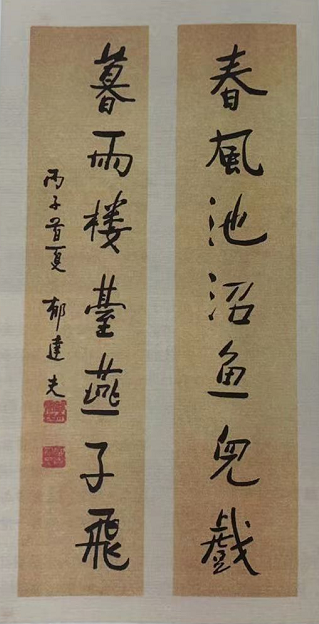 春風池沼鱼兒戲
暮雨楼臺燕子飛
丙子首夏 郁達夫